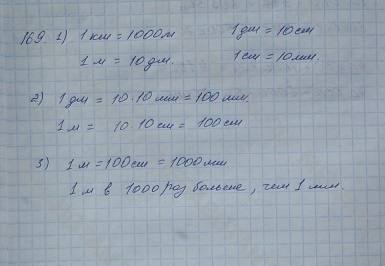 169. 1) 1 км = 1000м 1 дм = 10см
1 м = 10 дм. 1 см = 10мм.
2) 1 дм = 10 · 10 мм = 100 мм.
1 м = 10 · 10 см = 100 см
3) 1 м = 100 см = 1000мм
1 м в 1000 раз больше, чем 1 мм.